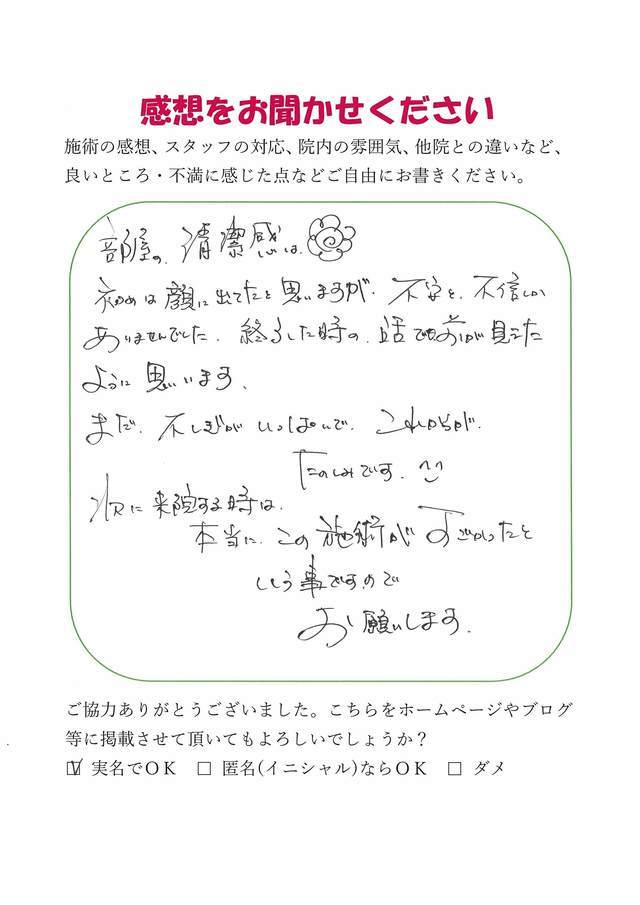 感想をお聞かせください
施術の感想、スタッフの対応、院内の雰囲気、他院との違いなど、
良いところ・不満に感じた点などご自由にお書きください。
部屋の、清潔感は、
初めは顔に出てたと思いますが、不安と、不信しか
ありませんでした。終了した時の、話でも先が見えた
ように思います。
まだ、不しぎがいっぱいで、これからが、
たのしみです。^^
次に来院する時は、
本当に、この施術がすごかったと
いう事ですので
お願いします。
ご協力ありがとうございました。こちらをホームページやブログ
等に掲載させて頂いてもよろしいでしょうか？
☑ 実名でＯＫ □ 匿名(イニシャル)ならＯＫ □ ダメ